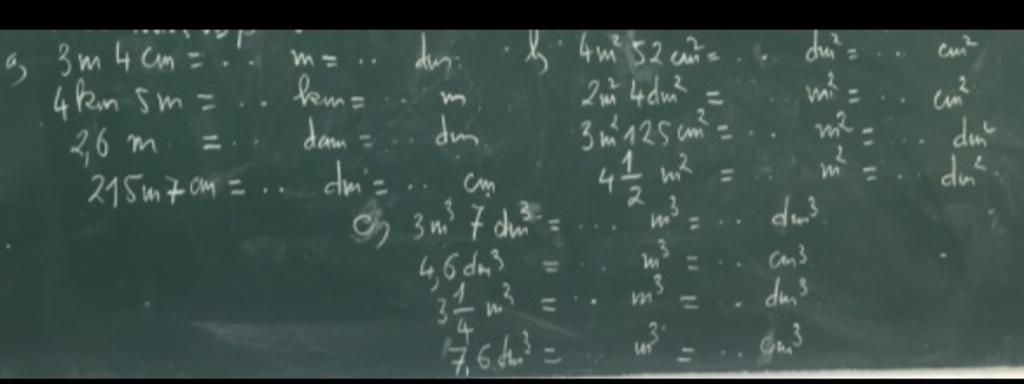 a, 3m 4cm = .. m = .. dm.
4km 5m = .. km = .. m
2,6 m = .. dam = .. dm
215m7cm = .. dm = .. cm
b, 4m² 52cm² = .. dm² = .. cm²
2m² 4dm² = .. m² = .. cm²
3m²125cm² = .. m² = .. dm²
4 1/2 m² = .. m² = .. dm².
c, 3m³ 7dm³ = ... m³ = .. dm³
4,6dm³ = .. m³ = .. cm³
3 1/4 m³ = .. m³ = .. dm³
7,6dm³ = .. m³ = .. cm³